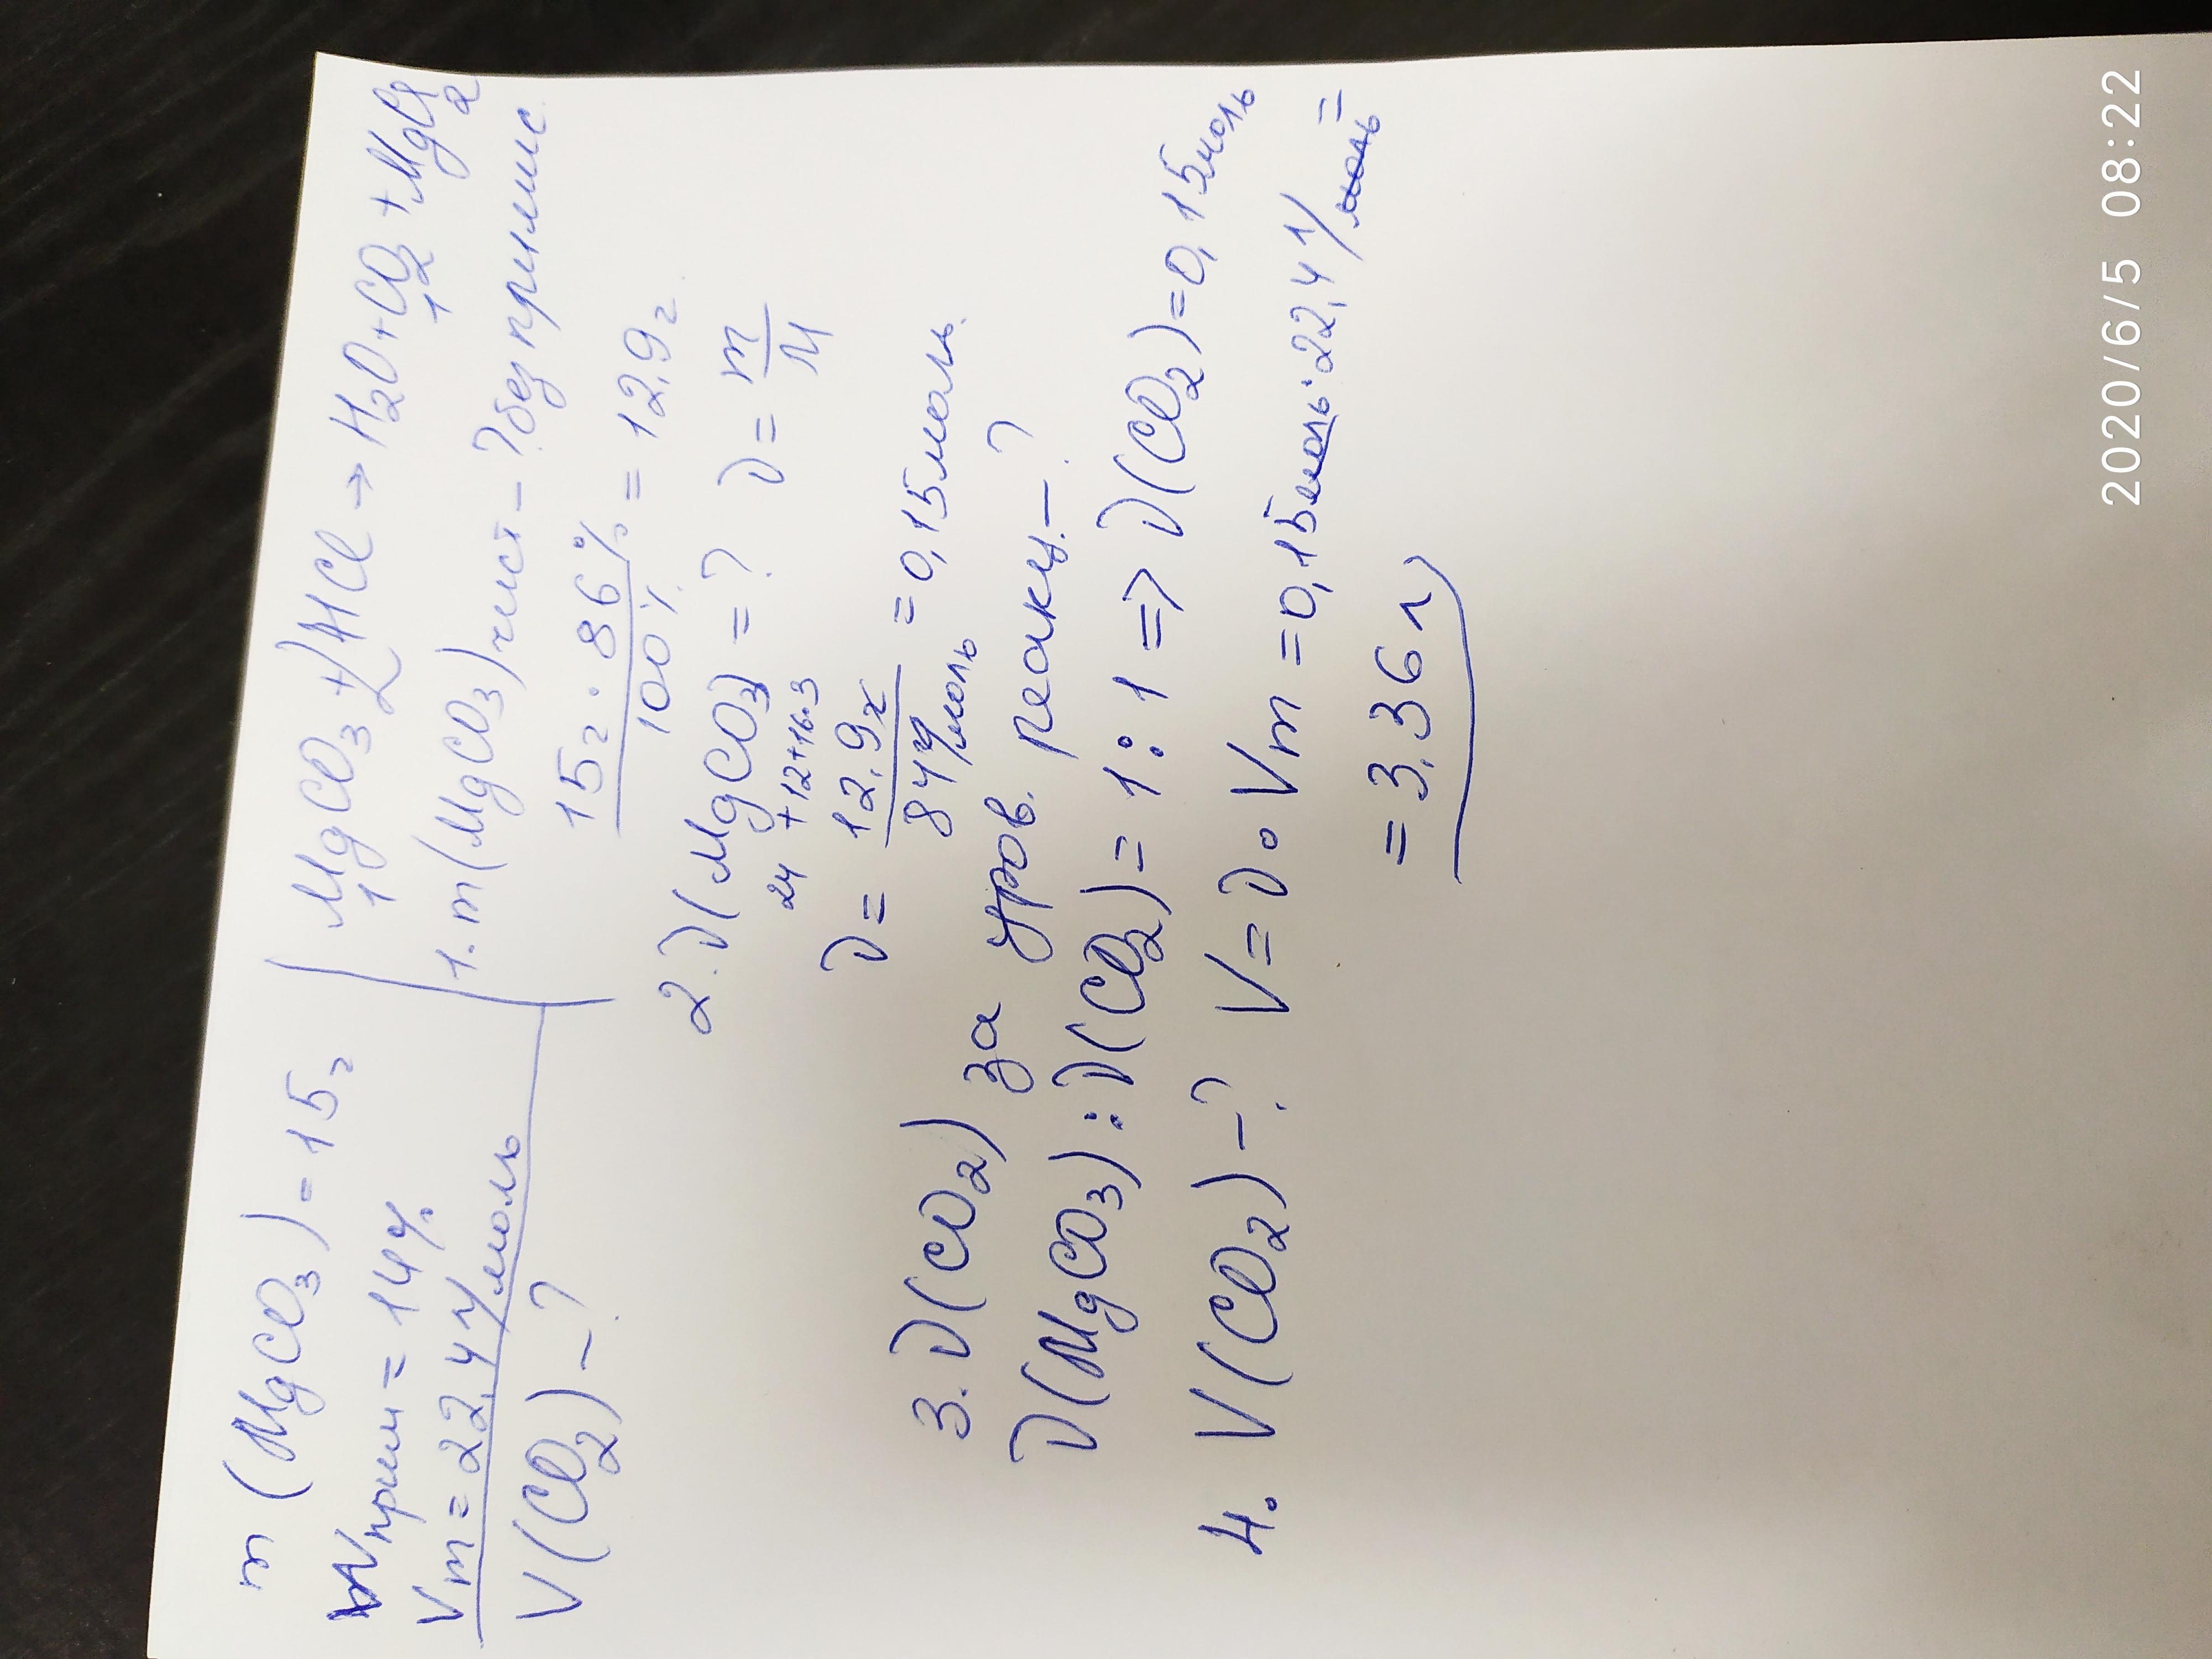 m (MgCO3) = 15г
Wприм = 14%
Vm = 22,4 л/моль
V(CO2) - ?
MgCO3 + 2HCl → H2O + CO2 + MgCl2
1 1
1. m(MgCO3) чист - ? без примис
15г · 86% / 100% = 12,9г
2. ν(MgCO3) = ? ν = m/M
24 + 12 + 16·3
ν = 12,9г / 84 г/моль = 0,15 моль.
3. ν(CO2) за уров. реакц. - ?
ν(MgCO3) : ν(CO2) = 1 : 1 => ν(CO2) = 0,15моль
4. V(CO2) - ? V = ν · Vm = 0,15моль · 22,4 л/моль =
= 3,36 л
2020/6/5 08:22